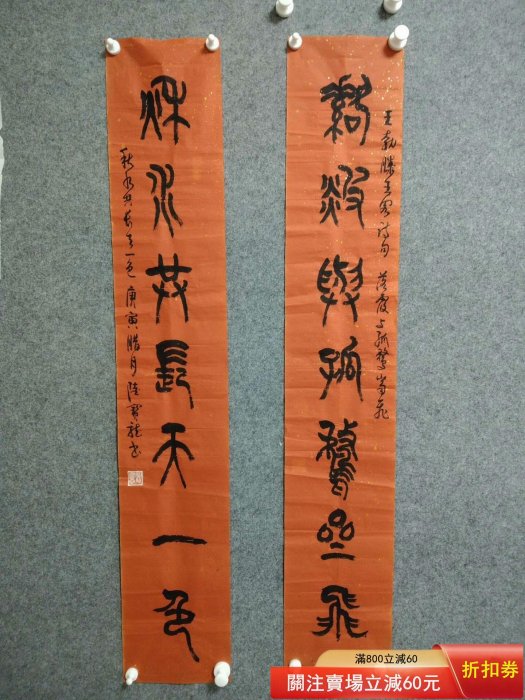 落霞與孤鶩齊飛
王勃滕王閣詩句 落霞与孤鶩齊飛
秋水共長天一色
秋水共長天一色 庚寅腊月陸龍书
滿800立減60
關注賣場立減60元
折扣券